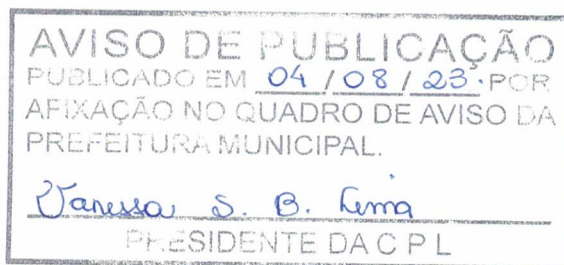 AVISO DE PUBLICAÇÃO
PUBLICADO EM 04 / 08 / 23. POR
AFIXAÇÃO NO QUADRO DE AVISO DA
PREFEITURA MUNICIPAL.
Vanessa S. B. Lima
PRESIDENTE DA C P L